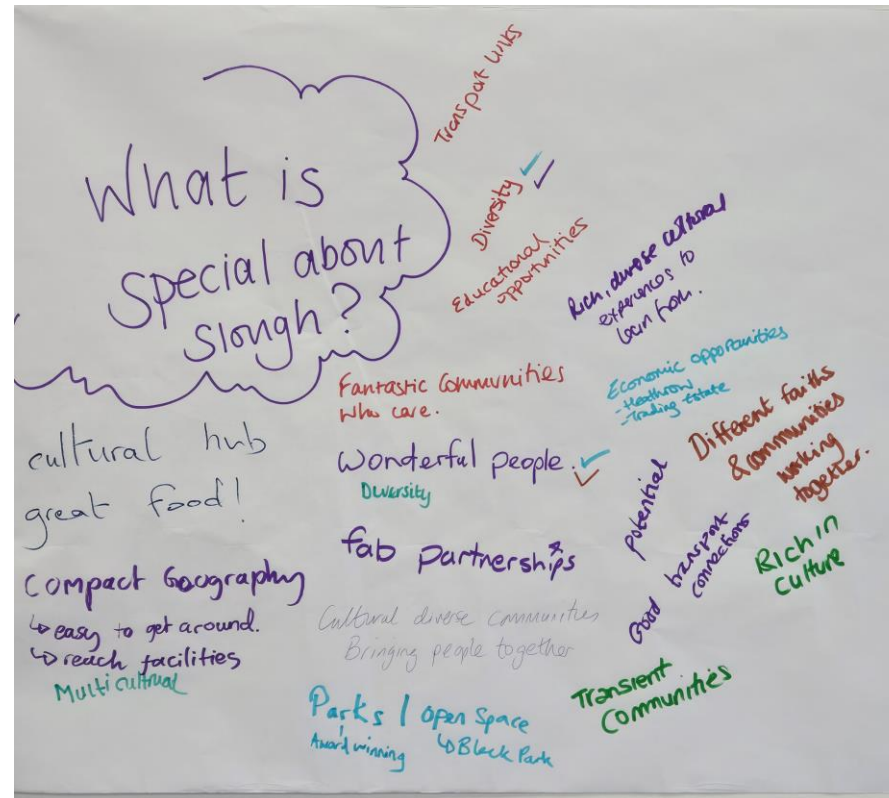 What is
special about
Slough?
Transport links
Diversity
Educational
opportunities
Rich, diverse cultural
experiences to
learn from.
Fantastic Communities
who care.
Economic opportunities
- Heathrow
- Trading Estate
Different faiths
& communities
working
together.
cultural hub
great food!
Wonderful people.
Diversity
potential
fab partnerships
Good transport
connections
Rich in
Culture
Compact Geography
↳ easy to get around.
↳ reach facilities
Multicultrual
Cultural diverse communities
Bringing people together
Transient
Communities
Parks / open Space
Award winning
↳ Black Park